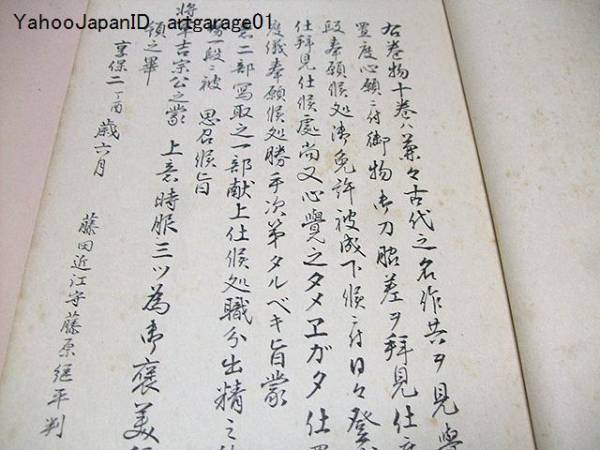 YahooJapanID artgarage01
右巻物十巻ハ兼々古代之名作共ヲ見覺
置度心願ニ付御物御刀脇差ヲ拝見仕度
段奉願候処御免許被成下候ニ付日々登
仕拜見仕候處尚又心覺之タメヱガタ仕置
度儀奉願候処勝手次第タルベキ旨蒙
二部寫取之一部献上仕候処職分出精之
一段ニ被 思召候旨
將軍吉宗公之蒙 上意時服三ツ為御褒美
領之畢
享保二丁酉歳六月
藤田近江守藤原継平判